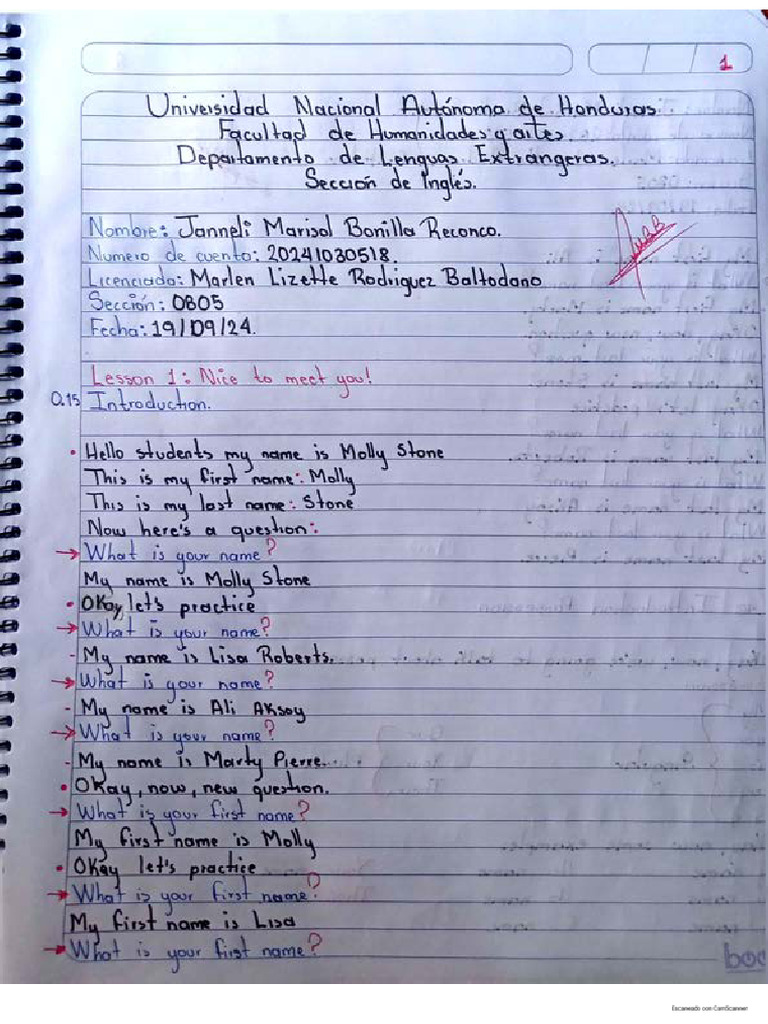 1
Universidad Nacional Autónoma de Honduras.
Facultad de Humanidades y artes.
Departamento de Lenguas Extrangeras.
Sección de Inglés.
Nombre: Janneli Marisol Bonilla Reconco.
Numero de cuento: 20241030518.
Licenciado: Marlen Lizette Rodriguez Baltodano
Sección: 0805
Fecha: 19/09/24.
Lesson 1: Nice to meet you!
0.15 Introduction.
• Hello students my name is Molly Stone
This is my first name: Molly
This is my last name: Stone
Now here's a question:
→ What is your name?
My name is Molly Stone
• Okay, let's practice
→ What is your name?
- My name is Lisa Roberts.
→ What is your name?
- My name is Ali Aksoy
→ What is your name?
- My name is Marty Pierre.
• Okay, now, new question.
→ What is your first name?
My first name is Molly
• Okay let's practice
→ What is your first name?
My first name is Lisa
→ What is your first name?
Escaneado con CamScanner